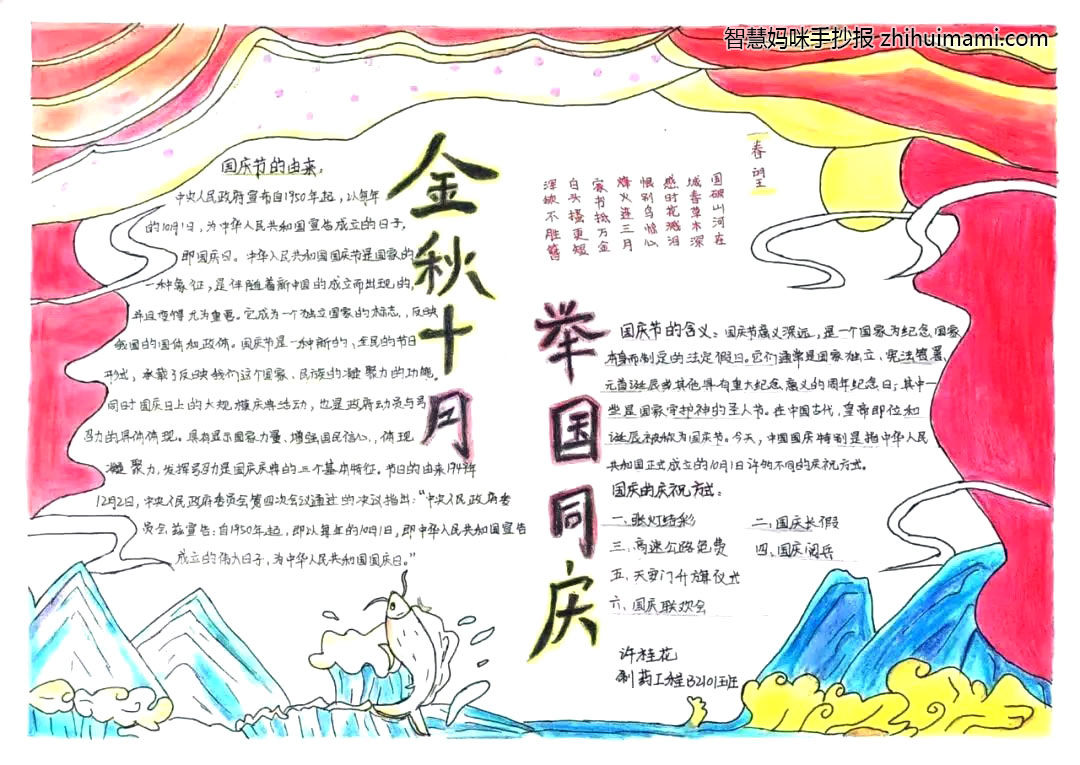 智慧妈咪手抄报 zhihuimami.com
国庆节的由来:
中央人民政府宣布自1950年起,以每年
的10月1日,为中华人民共和国宣告成立的日子,
即国庆日。中华人民共和国国庆节是国家的
一种象征,是伴随着新中国的成立而出现的,
并且变得尤为重要。它成为一个独立国家的标志,反映
我国的国体和政体。国庆节是一种新的、全民的节日
形式,承载了反映我们这个国家、民族的凝聚力的功能。
同时国庆日上的大规模庆典活动,也是政府动员与号
召力的具体体现。具有显示国家力量、增强国民信心,体现
凝聚力,发挥号召力是国庆庆典的三个基本特征。节日的由来1949年
12月2日,中央人民政府委员会第四次会议通过的决议指出:“中央人民政府委
员会兹宣告:自1950年起,即以每年的10月1日,即中华人民共和国宣告
成立的伟大日子,为中华人民共和国国庆日。”
金秋十月
举国同庆
春望
国破山河在
城春草木深
感时花溅泪
恨别鸟惊心
烽火连三月
家书抵万金
白头搔更短
浑欲不胜簪
国庆节的含义:国庆节意义深远,是一个国家为纪念国家
本身而制定的法定假日。它们通常是国家独立、宪法签署、
元首诞辰或其他具有重大纪念意义的周年纪念日;其中一
些是国家守护神的圣人节。在中国古代,皇帝即位和
诞辰被称为国庆节。今天,中国国庆特别是指中华人民
共和国正式成立的10月1日许多不同的庆祝方式。
国庆的庆祝方式:
一、张灯结彩 二、国庆长假
三、高速公路免费 四、国庆阅兵
五、天安门升旗仪式
六、国庆联欢会
许桂花
制药工程B2101班